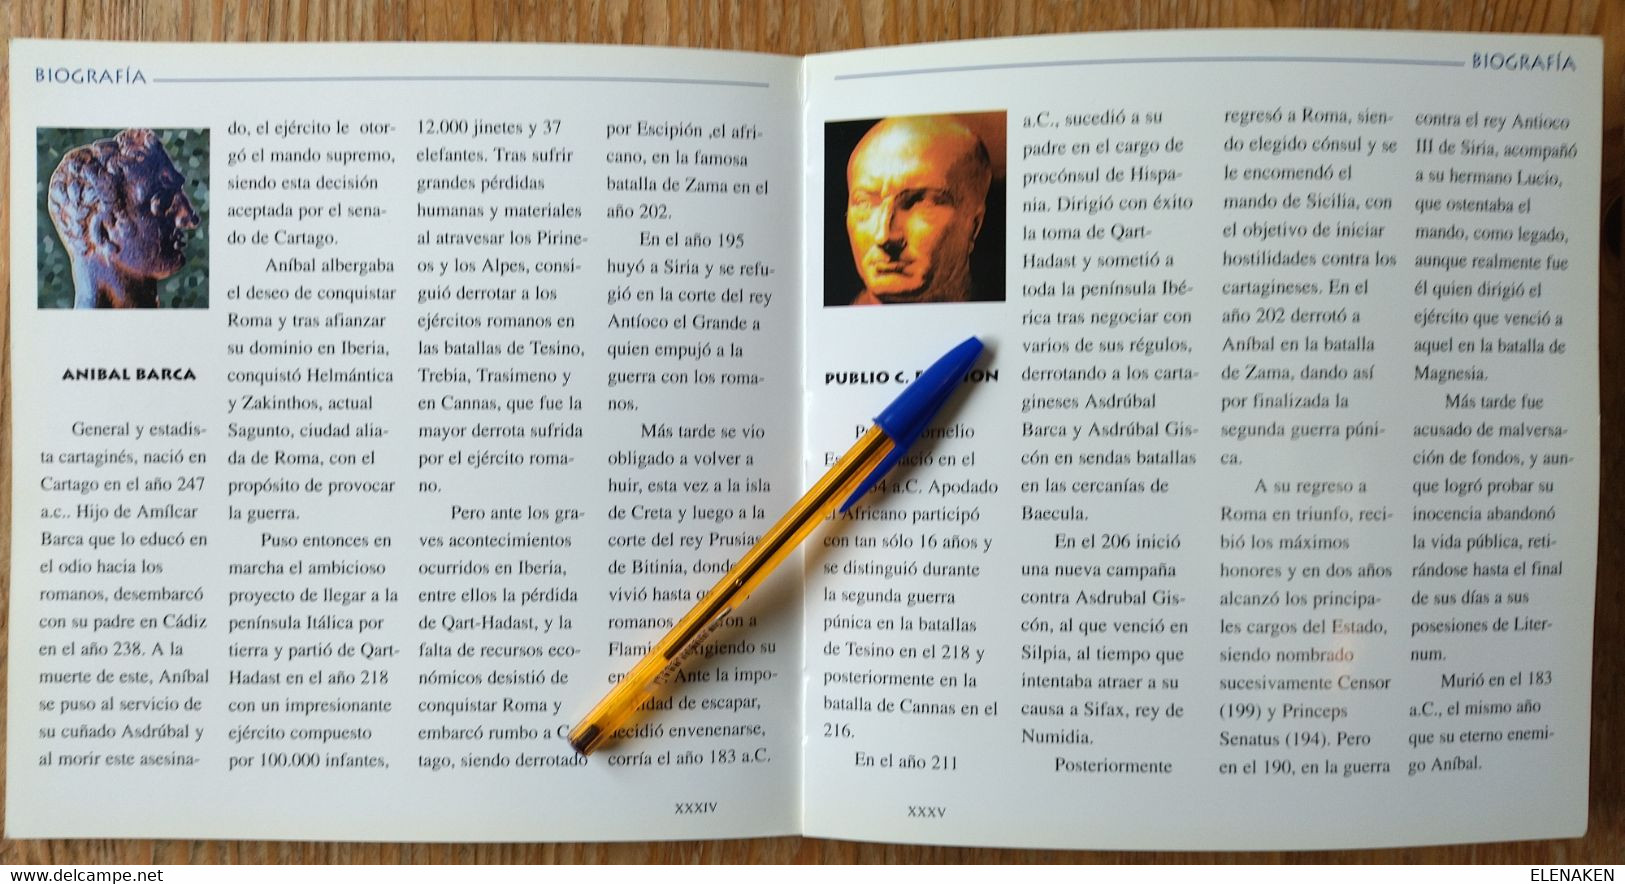 BIOGRAFÍA
ANIBAL BARCA
General y estadis-
ta cartaginés, nació en
Cartago en el año 247
a.c.. Hijo de Amílcar
Barca que lo educó en
el odio hacia los
romanos, desembarcó
con su padre en Cádiz
en el año 238. A la
muerte de este, Aníbal
se puso al servicio de
su cuñado Asdrúbal y
al morir este asesina-
do, el ejército le otor-
gó el mando supremo,
siendo esta decisión
aceptada por el sena-
do de Cartago.
Aníbal albergaba
el deseo de conquistar
Roma y tras afianzar
su dominio en Iberia,
conquistó Helmántica
y Zakinthos, actual
Sagunto, ciudad alia-
da de Roma, con el
propósito de provocar
la guerra.
Puso entonces en
marcha el ambicioso
proyecto de llegar a la
península Itálica por
tierra y partió de Qart-
Hadast en el año 218
con un impresionante
ejército compuesto
por 100.000 infantes,
12.000 jinetes y 37
elefantes. Tras sufrir
grandes pérdidas
humanas y materiales
al atravesar los Pirine-
os y los Alpes, consi-
guió derrotar a los
ejércitos romanos en
las batallas de Tesino,
Trebia, Trasimeno y
en Cannas, que fue la
mayor derrota sufrida
por el ejército roma-
no.
Pero ante los gra-
ves acontecimientos
ocurridos en Iberia,
entre ellos la pérdida
de Qart-Hadast, y la
falta de recursos eco-
nómicos desistió de
conquistar Roma y
embarcó rumbo a
tago, siendo derrotado
por Escipión ,el afri-
cano, en la famosa
batalla de Zama en el
año 202.
En el año 195
huyó a Siria y se refu-
gió en la corte del rey
Antíoco el Grande a
quien empujó a la
guerra con los roma-
nos.
Más tarde se vio
obligado a volver a
huir, esta vez a la isla
de Creta y luego a la
corte del rey Prusias
de Bitinia, donde
vivió hasta
romanos a
su
Ante la impo-
de escapar,
decidió envenenarse,
corría el año 183 a.C.
XXXIV
BIOGRAFÍA
PUBLIO C.
en el
a.C. Apodado
el Africano participó
con tan sólo 16 años y
se distinguió durante
la segunda guerra
púnica en la batallas
de Tesino en el 218 y
posteriormente en la
batalla de Cannas en el
216.
En el año 211
a.C., sucedió a su
padre en el cargo de
procónsul de Hispa-
nia. Dirigió con éxito
la toma de Qart-
Hadast y sometió a
toda la península Ibé-
rica tras negociar con
varios de sus régulos,
derrotando a los carta-
gineses Asdrúbal
Barca y Asdrúbal Gis-
cón en sendas batallas
en las cercanías de
Baecula.
En el 206 inició
una nueva campaña
contra Asdrubal Gis-
cón, al que venció en
Silpia, al tiempo que
intentaba atraer a su
causa a Sifax, rey de
Numidia.
Posteriormente
regresó a Roma, sien-
do elegido cónsul y se
le encomendó el
mando de Sicilia, con
el objetivo de iniciar
hostilidades contra los
cartagineses. En el
año 202 derrotó a
Aníbal en la batalla
de Zama, dando así
por finalizada la
segunda guerra púni-
ca.
A su regreso a
Roma en triunfo, reci-
bió los máximos
honores y en dos años
alcanzó los principa-
les cargos del Estado,
siendo nombrado
sucesivamente Censor
(199) y Princeps
Senatus (194). Pero
en el 190, en la guerra
contra el rey Antioco
III de Siria, acompañó
a su hermano Lucio,
que ostentaba el
mando, como legado,
aunque realmente fue
él quien dirigió el
ejército que venció a
aquel en la batalla de
Magnesia.
Más tarde fue
acusado de malversa-
ción de fondos, y aun-
que logró probar su
inocencia abandonó
la vida pública, reti-
rándose hasta el final
de sus días a sus
posesiones de Liter-
num.
Murió en el 183
a.C., el mismo año
que su eterno enemi-
go Aníbal.
XXXV
www.delcampe.net
ELENAKEN